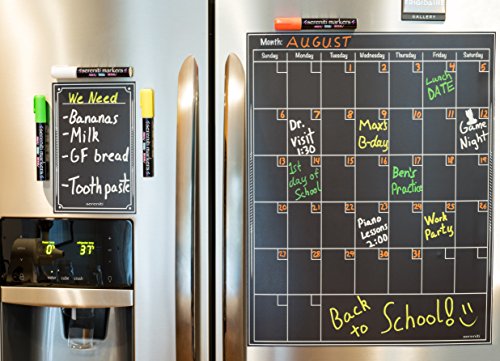 FRIGIDAIRE
GALLERY
sereniti markers
Month: AUGUST
Sunday Monday Tuesday Wednesday Thursday Friday Saturday
1 2 3 4 5
Lunch
DATE
6 7 8 9 10 11 12
Dr.
Visit
1:30
Max's
B-day
Game
Night
13 14 15 16 17 18 19
1st
day of
School
Ben's
Practice
20 21 22 23 24 25 26
Piano
Lessons
2:00
Work
Party
27 28 29 30 31
Back
to School!
sereniti
sereniti markers
We Need
-Bananas
-Milk
-GF bread
-Toothpaste
sereniti
sereniti markers
sereniti markers
0° 37°
water cube crush